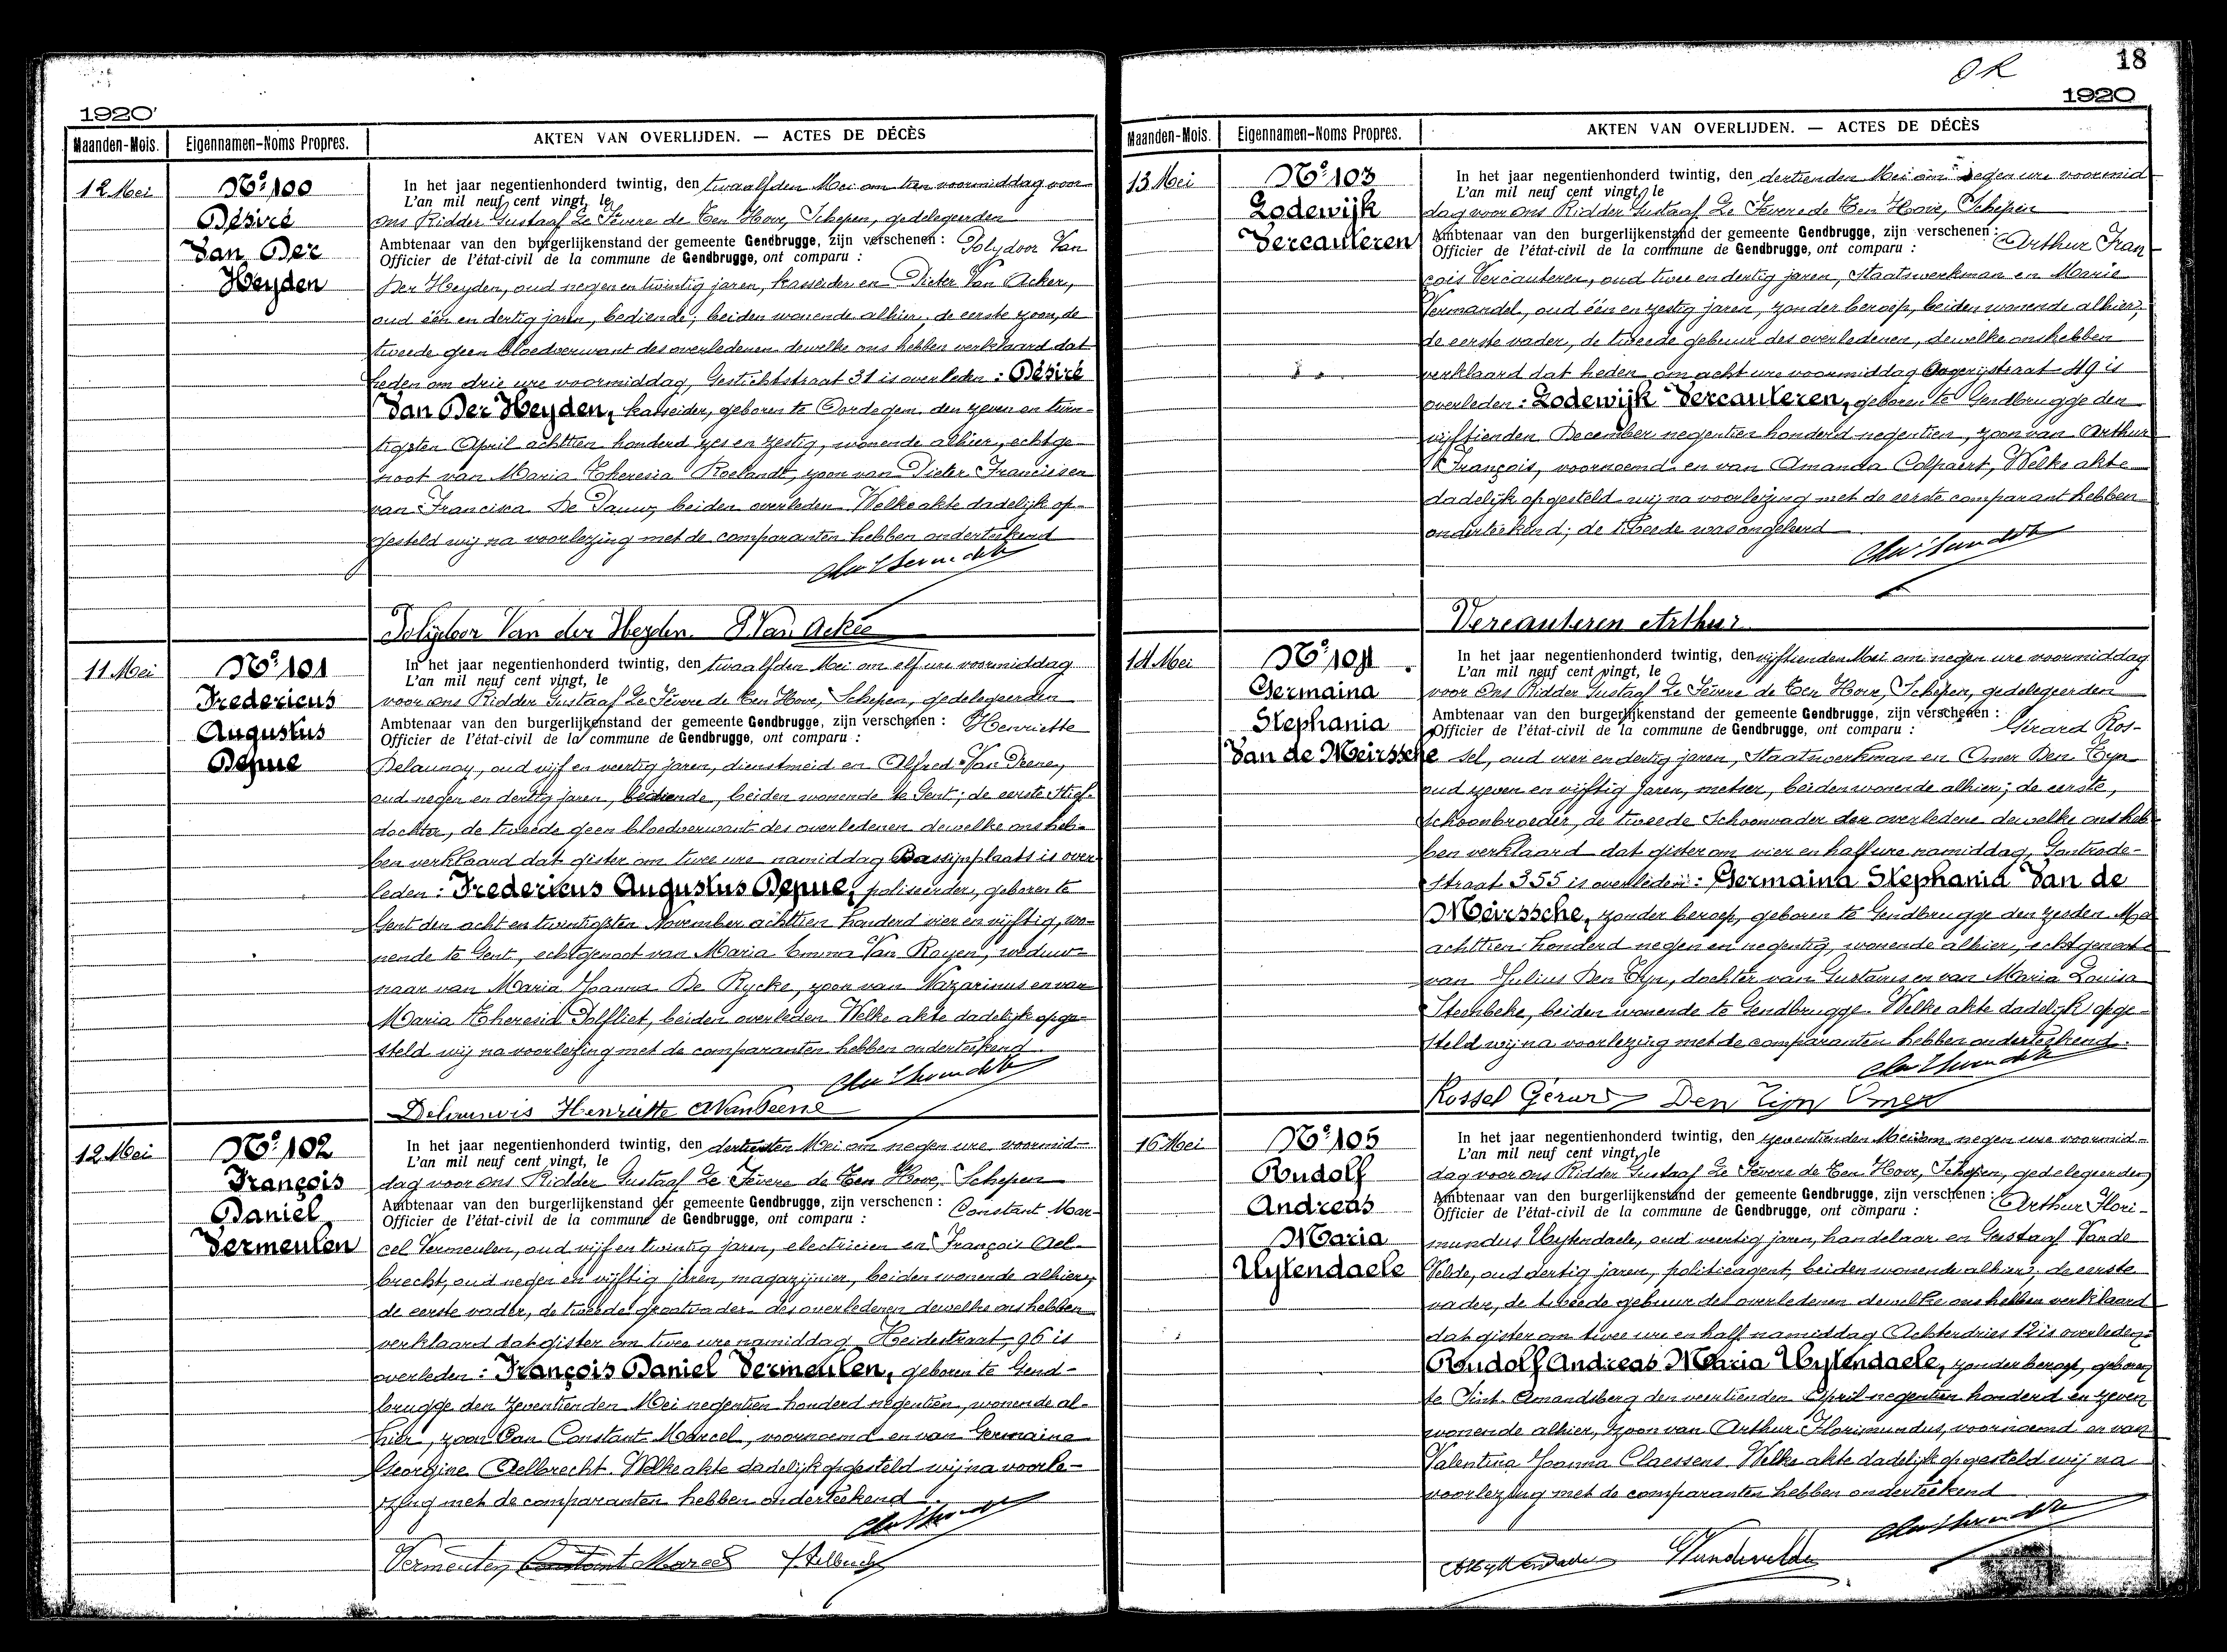 1920
Maanden-Mois. Eigennamen-Noms Propres. AKTEN VAN OVERLIJDEN. — ACTES DE DÉCÈS
12 Mei
Nº 100
Désiré
Van Der
Heyden
In het jaar negentienhonderd twintig, den twaalfden Mei om tien voormiddag voor
L'an mil neuf cent vingt, le
ons Ridder Gustaaf Le Fèvere de Ten Hove, Schepen, gedelegeerden
Ambtenaar van den burgerlijkenstand der gemeente Gendbrugge, zijn verschenen : Polydoor Van
Officier de l'état-civil de la commune de Gendbrugge, ont comparu :
Der Heyden, oud negen en twintig jaren, kasseider en Pieter Van Acker,
oud één en dertig jaren, bediende; beiden wonende alhier, de eerste zoon, de
tweede geen bloedverwant des overledenen dewelke ons hebben verklaard dat
heden om drie ure voormiddag, Gestichtstraat 31 is overleden : Désiré
Van Der Heyden, kasseider, geboren te Oordegem den zeven en twin-
tigsten April achttien honderd zes en zestig, wonende alhier, echtge-
noot van Maria Theresia Roelandt, zoon van Pieter Francies en
van Francisca De Pauw, beiden overleden. Welke akte dadelijk op-
gesteld wij na voorlezing met de comparanten hebben onderteekend
Polydoor Van der Heyden. P. Van Acker
11 Mei
Nº 101
Fredericus
Augustus
Depue
In het jaar negentienhonderd twintig, den twaalfden Mei om elf ure voormiddag
L'an mil neuf cent vingt, le
voor ons Ridder Gustaaf Le Fèvere de Ten Hove, Schepen, gedelegeerden
Ambtenaar van den burgerlijkenstand der gemeente Gendbrugge, zijn verschenen : Henriette
Officier de l'état-civil de la commune de Gendbrugge, ont comparu :
Delaunoy, oud vijf en veertig jaren, dienstmeid en Alfred Van Peene,
oud negen en dertig jaren, bediende, beiden wonende te Gent; de eerste stief-
dochter, de tweede geen bloedverwant des overledenen dewelke ons heb-
ben verklaard dat gister om twee ure namiddag Bassijnplaats is over
leden : Fredericus Augustus Depue, polisseerder, geboren te
Gent den acht en twintigsten November achttien honderd vier en vijftig, wo-
nende te Gent, echtgenoot van Maria Emma Van Royen, weduw-
naar van Maria Joanna De Rycke, zoon van Nazarinus en van
Maria Theresia Polfliet, beiden overleden Welke akte dadelijk opge-
steld wij na voorlezing met de comparanten hebben onderteekend
Delaunois Henriette AVanPeene
12 Mei
Nº 102
François
Daniel
Vermeulen
In het jaar negentienhonderd twintig, den dertienden Mei om negen ure voormid-
L'an mil neuf cent vingt, le
dag voor ons Ridder Gustaaf Le Fèvere de Ten Hove, Schepen
Ambtenaar van den burgerlijkenstand der gemeente Gendbrugge, zijn verschenen : Constant Mar-
Officier de l'état-civil de la commune de Gendbrugge, ont comparu :
cel Vermeulen, oud vijf en twintig jaren, electricien en François Ael-
brecht, oud negen en vijftig jaren, magazijnier, beiden wonende alhier,
de eerste vader, de tweede grootvader des overledenen dewelke ons hebben
verklaard dat gister om twee ure namiddag Heidestraat 96 is
overleden : François Daniel Vermeulen, geboren te Gend-
brugge den zeventienden Mei negentien honderd negentien, wonende al-
hier, zoon van Constant Marcel, voornoemd en van Germaine
Georgine Aelbrecht. Welke akte dadelijk opgesteld wij na voorle-
zing met de comparanten hebben onderteekend
Vermeulen Constant Marcel F Aelbrecht
OK
18
1920
Maanden-Mois. Eigennamen-Noms Propres. AKTEN VAN OVERLIJDEN. — ACTES DE DÉCÈS
13 Mei
Nº 103
Lodewijk
Vercauteren
In het jaar negentienhonderd twintig, den dertienden Mei om negen ure voormid
L'an mil neuf cent vingt, le
dag voor ons Ridder Gustaaf Le Fèvere de Ten Hove, Schepen
Ambtenaar van den burgerlijkenstand der gemeente Gendbrugge, zijn verschenen : Arthur Fran
Officier de l'état-civil de la commune de Gendbrugge, ont comparu :
çois Vercauteren, oud twee en dertig jaren, Staatswerkman en Marie
Vermandel, oud één en zestig jaren, zonder beroep, beiden wonende alhier,
de eerste vader, de tweede gebuur des overledenen, dewelke ons hebben
verklaard dat heden om acht ure voormiddag straat 49 is
overleden : Lodewijk Vercauteren, geboren te Gendbrugge den
vijftienden December negentien honderd negentien, zoon van Arthur
François, voornoemd en van Amanda Colpaert, Welke akte
dadelijk opgesteld wij na voorlezing met de eerste comparant hebben
onderteekend; de tweede was ongeleerd
Vercauteren Arthur
14 Mei
Nº 104
Germaina
Stephania
Van de Meirssche
In het jaar negentienhonderd twintig, den vijftienden Mei om negen ure voormiddag
L'an mil neuf cent vingt, le
voor ons Ridder Gustaaf Le Fèvere de Ten Hove, Schepen, gedelegeerden
Ambtenaar van den burgerlijkenstand der gemeente Gendbrugge, zijn verschenen : Gérard Ros-
Officier de l'état-civil de la commune de Gendbrugge, ont comparu :
sel, oud vier en dertig jaren, Staatswerkman en Omer Den Tyn
oud zeven en vijftig jaren, metser, beiden wonende alhier; de eerste,
schoonbroeder, de tweede Schoonvader der overledene dewelke ons heb
ben verklaard dat gister om vier en half ure namiddag, Gontrode-
straat 355 is overleden : Germaina Stephania Van de
Meirssche, zonder beroep, geboren te Gendbrugge den zesden Mei
achttien honderd negen en negentig, wonende alhier, echtgenoote
van Julius Den Tyn, dochter van Gustavus en van Maria Louisa
Steenbeke, beiden wonende te Gendbrugge. Welke akte dadelijk opge-
steld wij na voorlezing met de comparanten hebben onderteekend.
Rossel Gérard Den Tijn Omer
16 Mei
Nº 105
Rudolf
Andreas
Maria
Uytendaele
In het jaar negentienhonderd twintig, den zeventienden Mei om negen ure voormid-
L'an mil neuf cent vingt, le
dag voor ons Ridder Gustaaf Le Fèvere de Ten Hove, Schepen, gedelegeerden
Ambtenaar van den burgerlijkenstand der gemeente Gendbrugge, zijn verschenen : Arthur Flori-
Officier de l'état-civil de la commune de Gendbrugge, ont comparu :
mundus Uytendaele, oud veertig jaren, handelaar en Gustaaf Vande
Velde, oud dertig jaren, politieagent, beiden wonende alhier, de eerste
vader, de tweede gebuur des overledenen dewelke ons hebben verklaard
dat gister om twee ure en half namiddag Achterdries 12 is overleden:
Rudolf Andreas Maria Uytendaele, zonder beroep, geboren
te Sint-Amandsberg den veertienden April negentien honderd en zeven
wonende alhier, zoon van Arthur Florimundus, voornoemd en van
Valentina Joanna Claessens. Welke akte dadelijk opgesteld wij na
voorlezing met de comparanten hebben onderteekend
GVandevelde